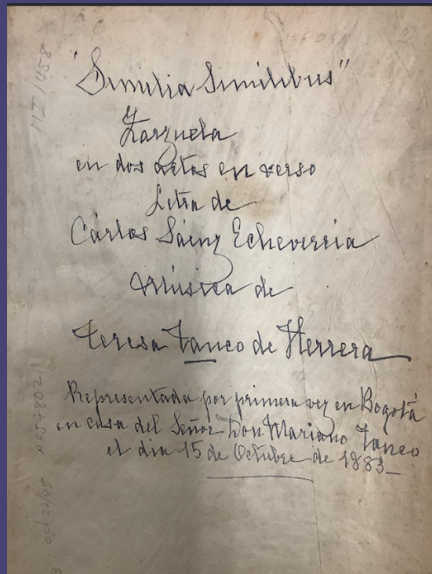 "Similia Similibus"
Zarzuela
en dos actos en verso
Letra de
Cárlos Sáinz Echeverria
Música de
Teresa Tanco de Herrera
Representada por primera vez en Bogotá
en casa del Señor Don Mariano Tanco
el dia 15 de Octubre de 1883
MI 1458